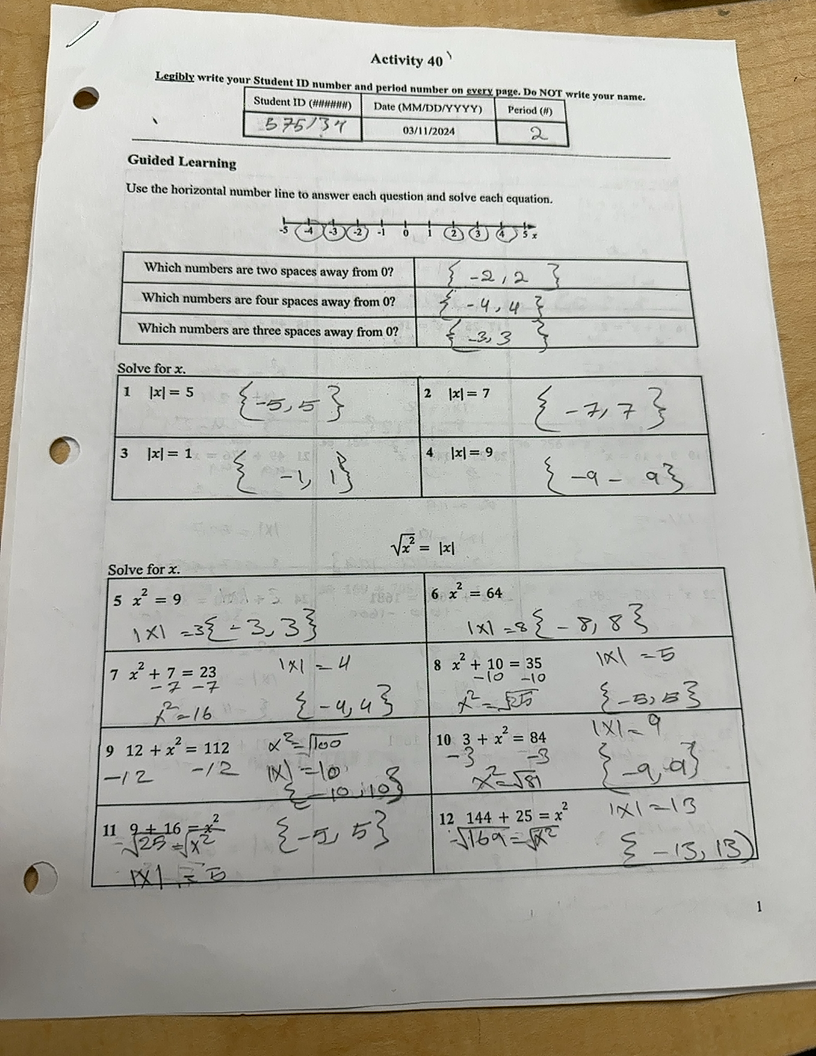 Activity 40
Legibly write your Student ID number and period number on every page. Do NOT write your name.
Student ID (######) Date (MM/DD/YYYY) Period (#)
575137 03/11/2024 2
Guided Learning
Use the horizontal number line to answer each question and solve each equation.
-5 -4 -3 -2 -1 0 1 2 3 4 5 x
Which numbers are two spaces away from 0? { -2, 2 }
Which numbers are four spaces away from 0? { -4, 4 }
Which numbers are three spaces away from 0? { -3, 3 }
Solve for x.
1 |x| = 5 { -5, 5 }
2 |x| = 7 { -7, 7 }
3 |x| = 1 { -1, 1 }
4 |x| = 9 { -9 - 9 }
√x² = |x|
Solve for x.
5 x² = 9
|x| = 3 { -3, 3 }
6 x² = 64
|x| = 8 { -8, 8 }
7 x² + 7 = 23 |x| = 4
-7 -7
x² = 16 { -4, 4 }
8 x² + 10 = 35 |x| = 5
-10 -10
x² = √25 { -5, 5 }
9 12 + x² = 112 x² = √100
-12 -12 |x| = 10
{ -10, 10 }
10 3 + x² = 84 |x| = 9
-3 -3
x² = √81 { -9, 9 }
11 9 + 16 = x² { -5, 5 }
√25 = √x²
|x| = 5
12 144 + 25 = x² |x| = 13
√169 = √x²
{ -13, 13 )
1